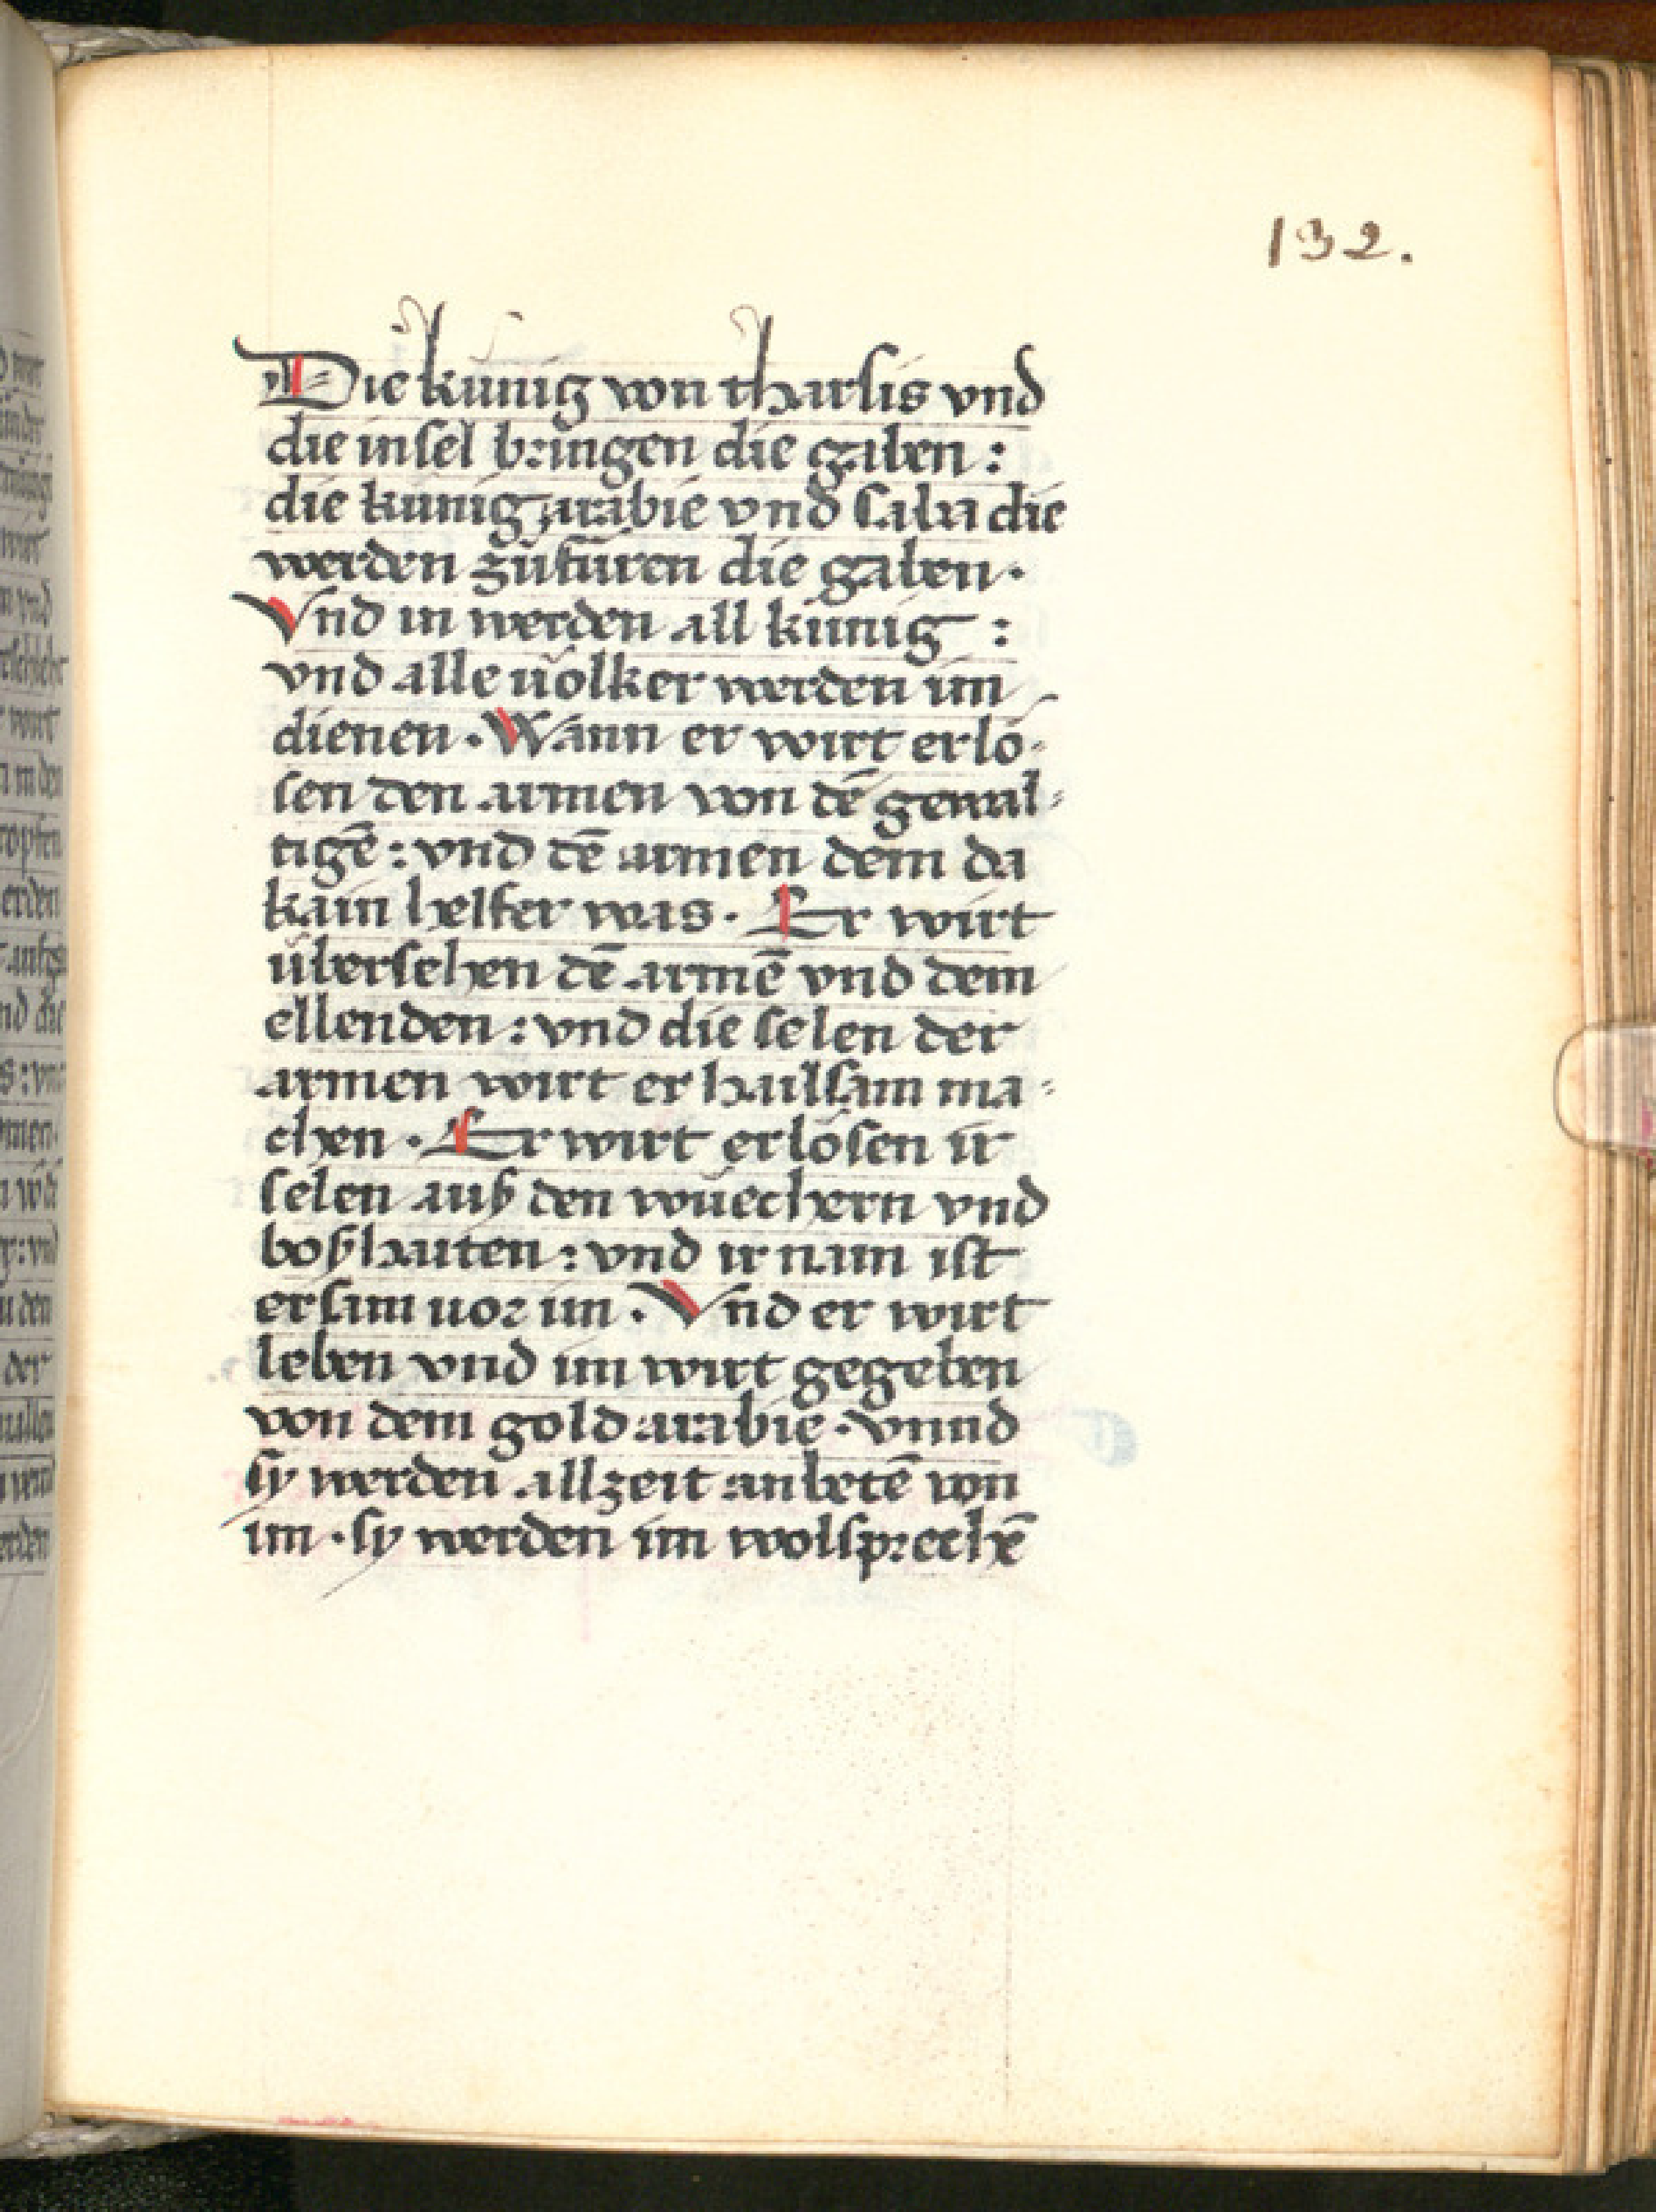 132.
Die kúnig von tharsis vnd
die insel bringen die gaben :
die kúnig arabie vnd saba die
werden zůfüren die gaben ·
Vnd in werden all kúnig :
vnd alle uölker werden im
dienen · Wann er wirt erlö-
sen den armen von dē gewal-
tigē : vnd dē armen dem da
kain helfer was · Er wirt
übersehen dē armē vnd dem
ellenden : vnd die selen der
armen wirt er hailsam ma-
chen · Er wirt erlösen ir
selen auß den wuechern vnd
boßhaiten : vnd ir nam ist
ersam uor im · Vnd er wirt
leben vnd im wirt gegeben
von dem gold arabie · vnnd
sy werden allzeit anbetē von
im · sy werden im wolsprechē